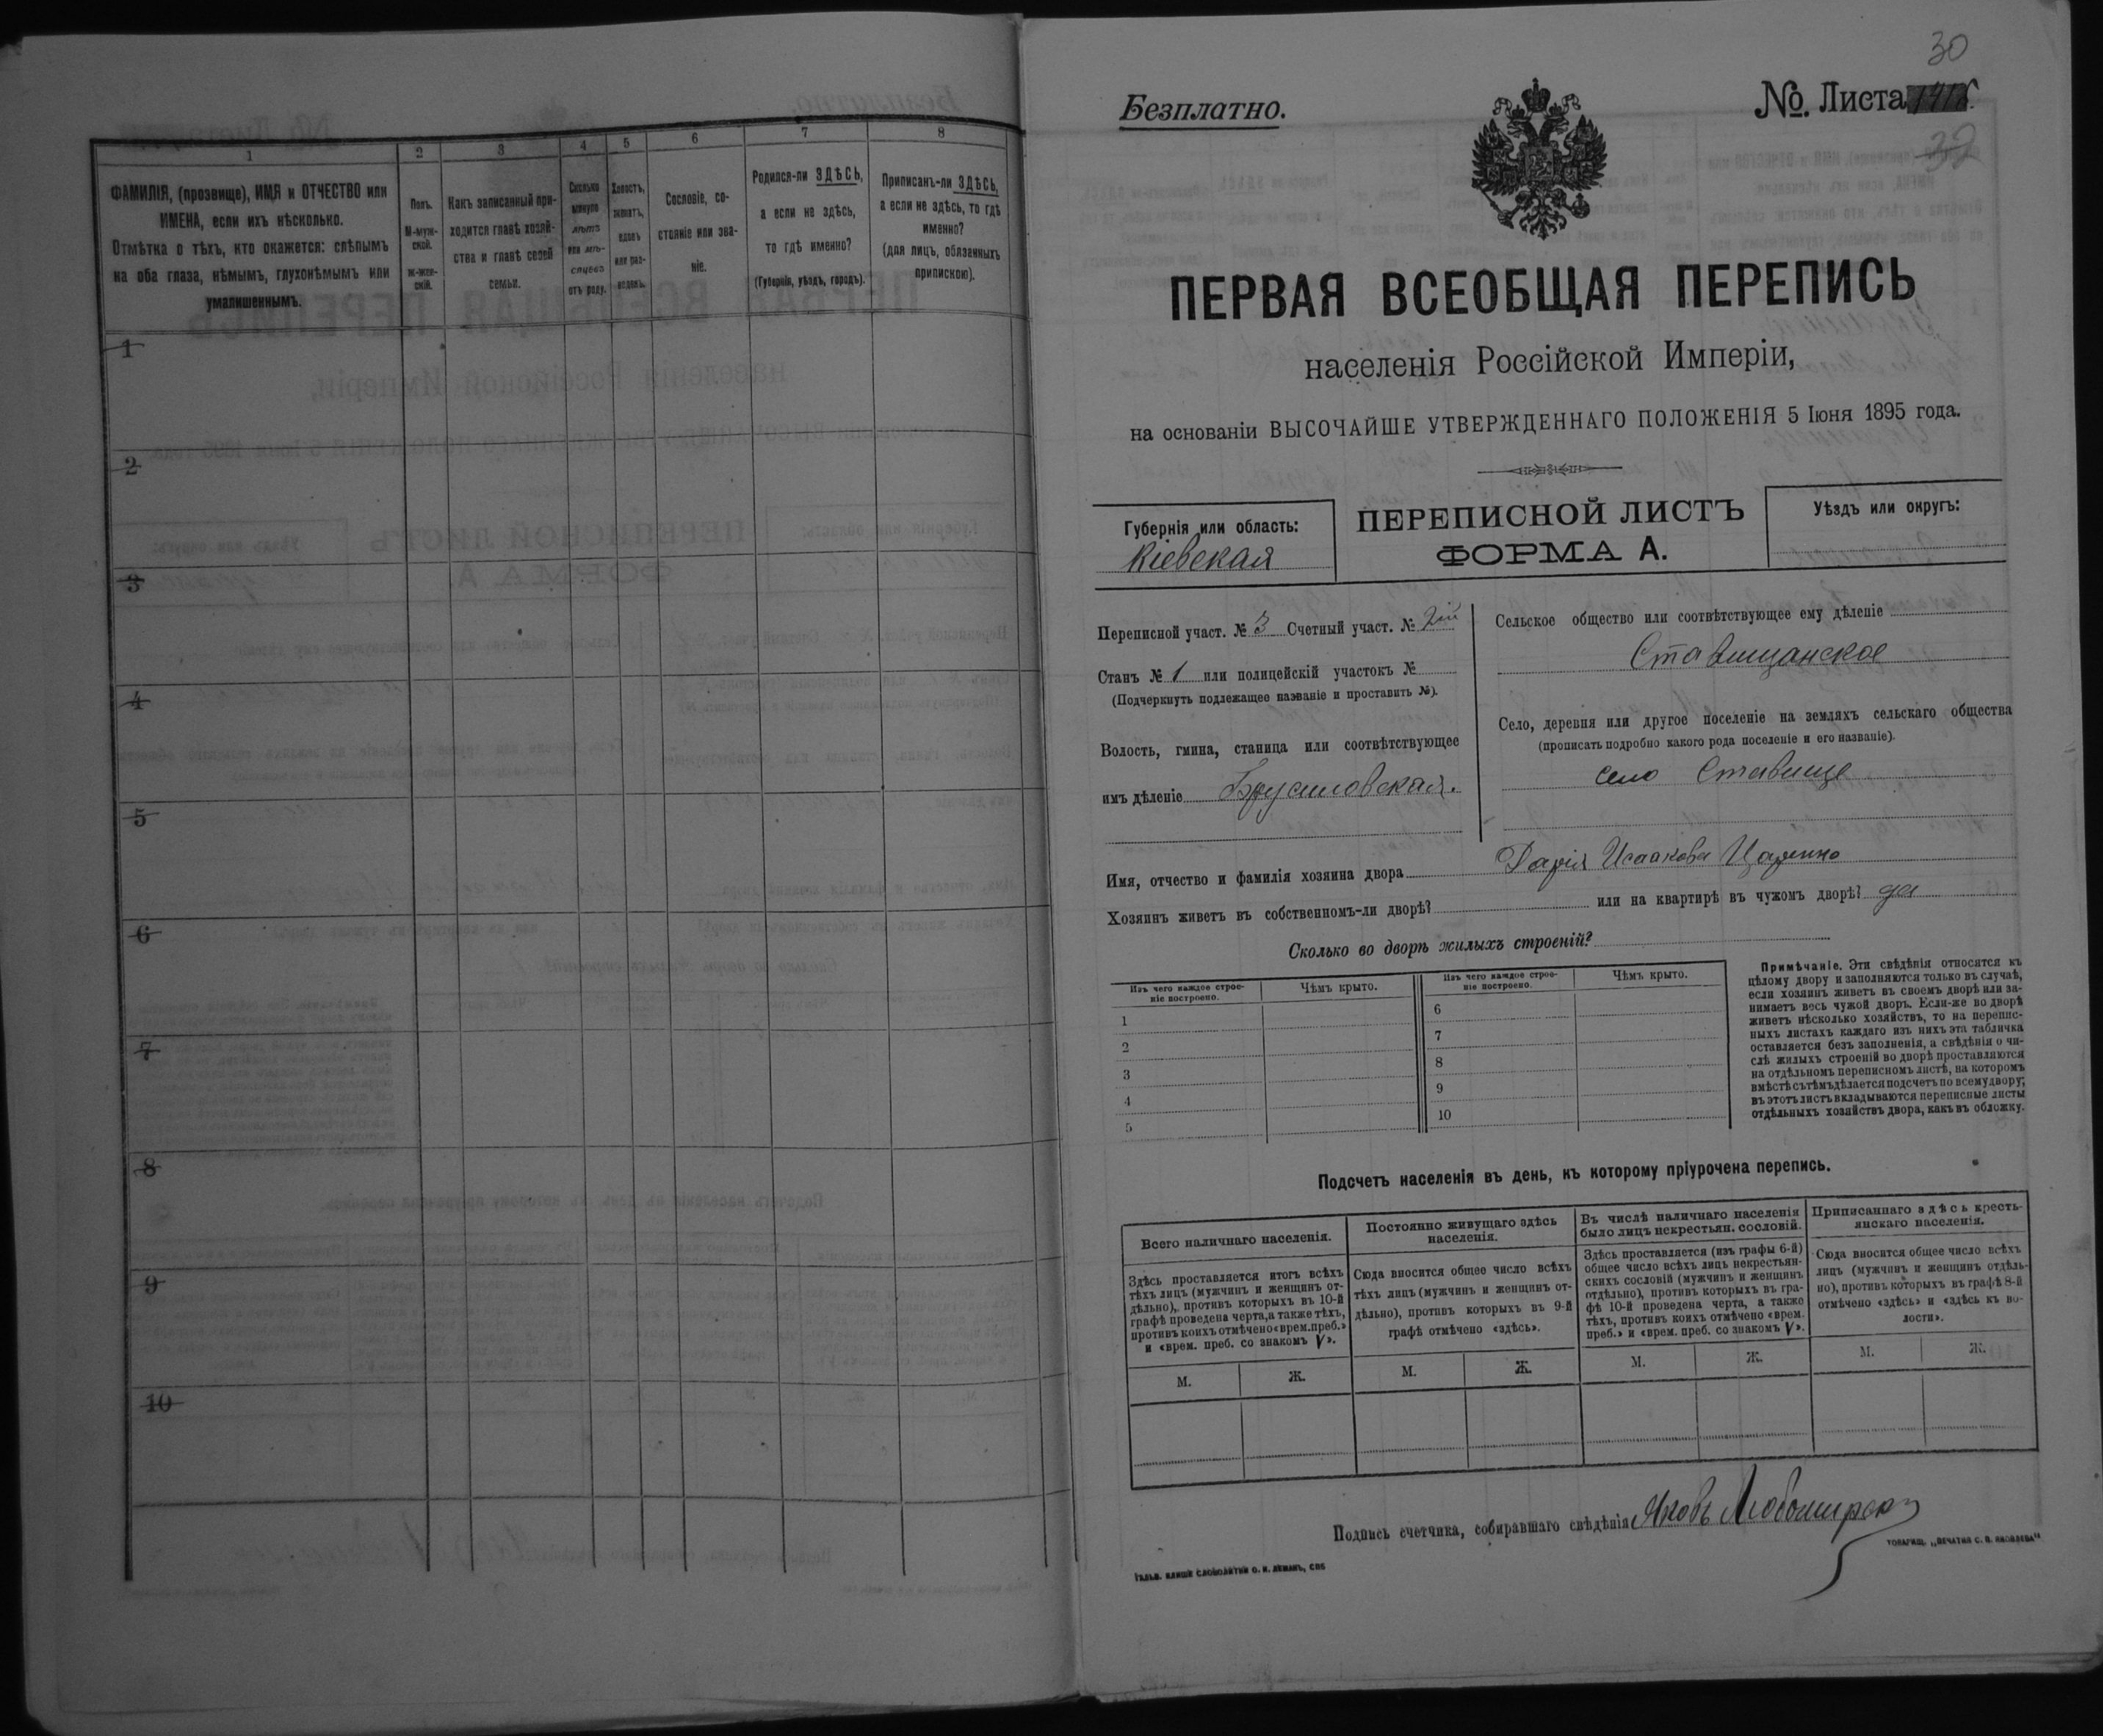 1
2
3
4
5
6
7
8
ФАМИЛІЯ, (прозвище), ИМЯ и ОТЧЕСТВО или
ИМЕНА, если ихъ нѣсколько.
Отмѣтка о тѣхъ, кто окажется: слѣпымъ
на оба глаза, нѣмымъ, глухонѣмымъ или
умалишеннымъ.
Полъ.
М-муж-
ской.
ж-жен-
скій.
Какъ записанный при-
ходится главѣ хозяй-
ства и главѣ своей
семьи.
Сколько
минуло
лѣтъ
или мѣ-
сяцевъ
отъ роду.
Холостъ,
женатъ,
вдовъ
или раз-
веденъ.
Сословіе, со-
стояніе или зва-
ніе.
Родился-ли ЗДѢСЬ,
а если не здѣсь,
то гдѣ именно?
(Губернія, уѣздъ, городъ).
Приписанъ-ли ЗДѢСЬ,
а если не здѣсь, то гдѣ
именно?
(для лицъ, обязанныхъ
припискою).
1
2
3
4
5
6
7
8
9
10
30
Безплатно.
№ Листа
32
ПЕРВАЯ ВСЕОБЩАЯ ПЕРЕПИСЬ
населенія Россійской Имперіи,
на основаніи ВЫСОЧАЙШЕ УТВЕРЖДЕННАГО ПОЛОЖЕНІЯ 5 Іюня 1895 года.
Губернія или область:
Кіевская
ПЕРЕПИСНОЙ ЛИСТЪ
ФОРМА А.
Уѣздъ или округъ:
Переписной участ. № 3 Счетный участ. № 2ой
Станъ № 1 или полицейскій участокъ №
(Подчеркнуть подлежащее названіе и проставить №).
Волость, гмина, станица или соотвѣтствующее
имъ дѣленіе Брусиловская.
Сельское общество или соотвѣтствующее ему дѣленіе
Ставищанское
Село, деревня или другое поселеніе на земляхъ сельскаго общества
(прописать подробно какого рода поселеніе и его названіе).
село Ставище
Имя, отчество и фамилія хозяина двора Дарія Исаакова Царенко
Хозяинъ живетъ въ собственномъ-ли дворѣ? или на квартирѣ въ чужомъ дворѣ? да
Сколько во дворѣ жилыхъ строеній?
Изъ чего каждое строе-
ніе построено.
Чѣмъ крыто.
Изъ чего каждое строе-
ніе построено.
Чѣмъ крыто.
1
2
3
4
5
6
7
8
9
10
Примѣчаніе. Эти свѣдѣнія относятся къ
цѣлому двору и заполняются только въ случаѣ,
если хозяинъ живетъ въ своемъ дворѣ или за-
нимаетъ весь чужой дворъ. Если-же во дворѣ
живетъ нѣсколько хозяйствъ, то на перепис-
ныхъ листахъ каждаго изъ нихъ эта табличка
оставляется безъ заполненія, а свѣдѣнія о чи-
слѣ жилыхъ строеній во дворѣ проставляются
на отдѣльномъ переписномъ листѣ, на которомъ
вмѣстѣ съ тѣмъ дѣлается подсчетъ по всему двору;
въ этотъ листъ вкладываются переписные листы
отдѣльныхъ хозяйствъ двора, какъ въ обложку.
Подсчетъ населенія въ день, къ которому пріурочена перепись.
Всего наличнаго населенія.
Постоянно живущаго здѣсь
населенія.
Въ числѣ наличнаго населенія
было лицъ некрестьян. сословій.
Приписаннаго здѣсь кресть-
янскаго населенія.
Здѣсь проставляется итогъ всѣхъ
тѣхъ лицъ (мужчинъ и женщинъ от-
дѣльно), противъ которыхъ въ 10-й
графѣ проведена черта, а также тѣхъ,
противъ коихъ отмѣчено «врем. преб.»
и «врем. преб. со знакомъ V».
Сюда вносится общее число всѣхъ
тѣхъ лицъ (мужчинъ и женщинъ от-
дѣльно), противъ которыхъ въ 9-й
графѣ отмѣчено «здѣсь».
Здѣсь проставляется (изъ графы 6-й)
общее число всѣхъ лицъ некрестьян-
скихъ сословій (мужчинъ и женщинъ
отдѣльно), противъ которыхъ въ гра-
фѣ 10-й проведена черта, а также
тѣхъ, противъ коихъ отмѣчено «врем.
преб.» и «врем. преб. со знакомъ V».
Сюда вносится общее число всѣхъ
лицъ (мужчинъ и женщинъ отдѣль-
но), противъ которыхъ въ графѣ 8-й
отмѣчено «здѣсь» и «здѣсь къ во-
лости».
М. Ж. М. Ж. М. Ж. М. Ж.
Подпись счетчика, собиравшаго свѣдѣнія Яковъ
Гальв. клише словолитни О. И. Леманъ, СПБ
Товарищ. „Печатня С. П. Яковлева“